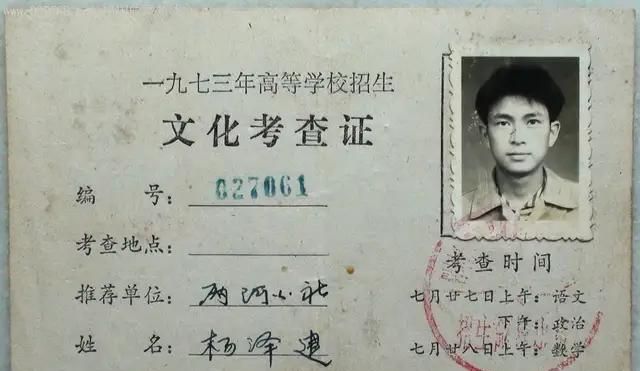 一九七三年高等学校招生
文化考查证
编 号： 027061
考查地点：
推荐单位： 两河公社
姓 名： 杨泽建
考查时间
七月廿七日上午：语文
下午：政治
七月廿八日上午：数学